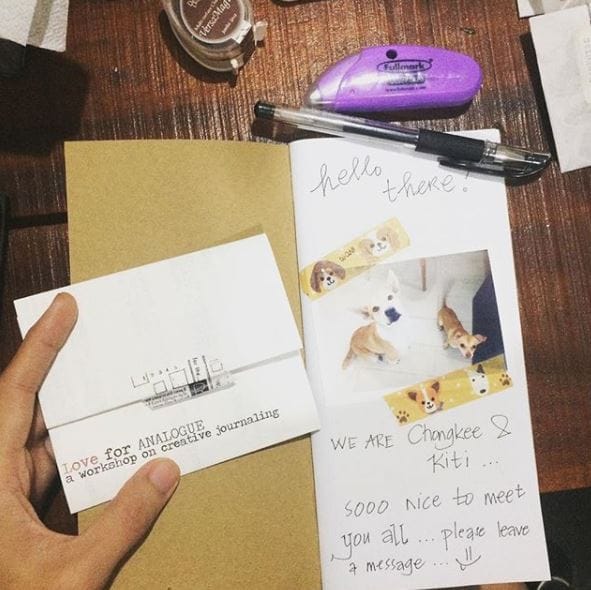 VersaMagic
Fullmark
hello
there!
WOOF
Love for ANALOGUE
a workshop on creative journaling
WE ARE Chongkee &
Kiti ...
sooo nice to meet
you all ... please leave
a message ...